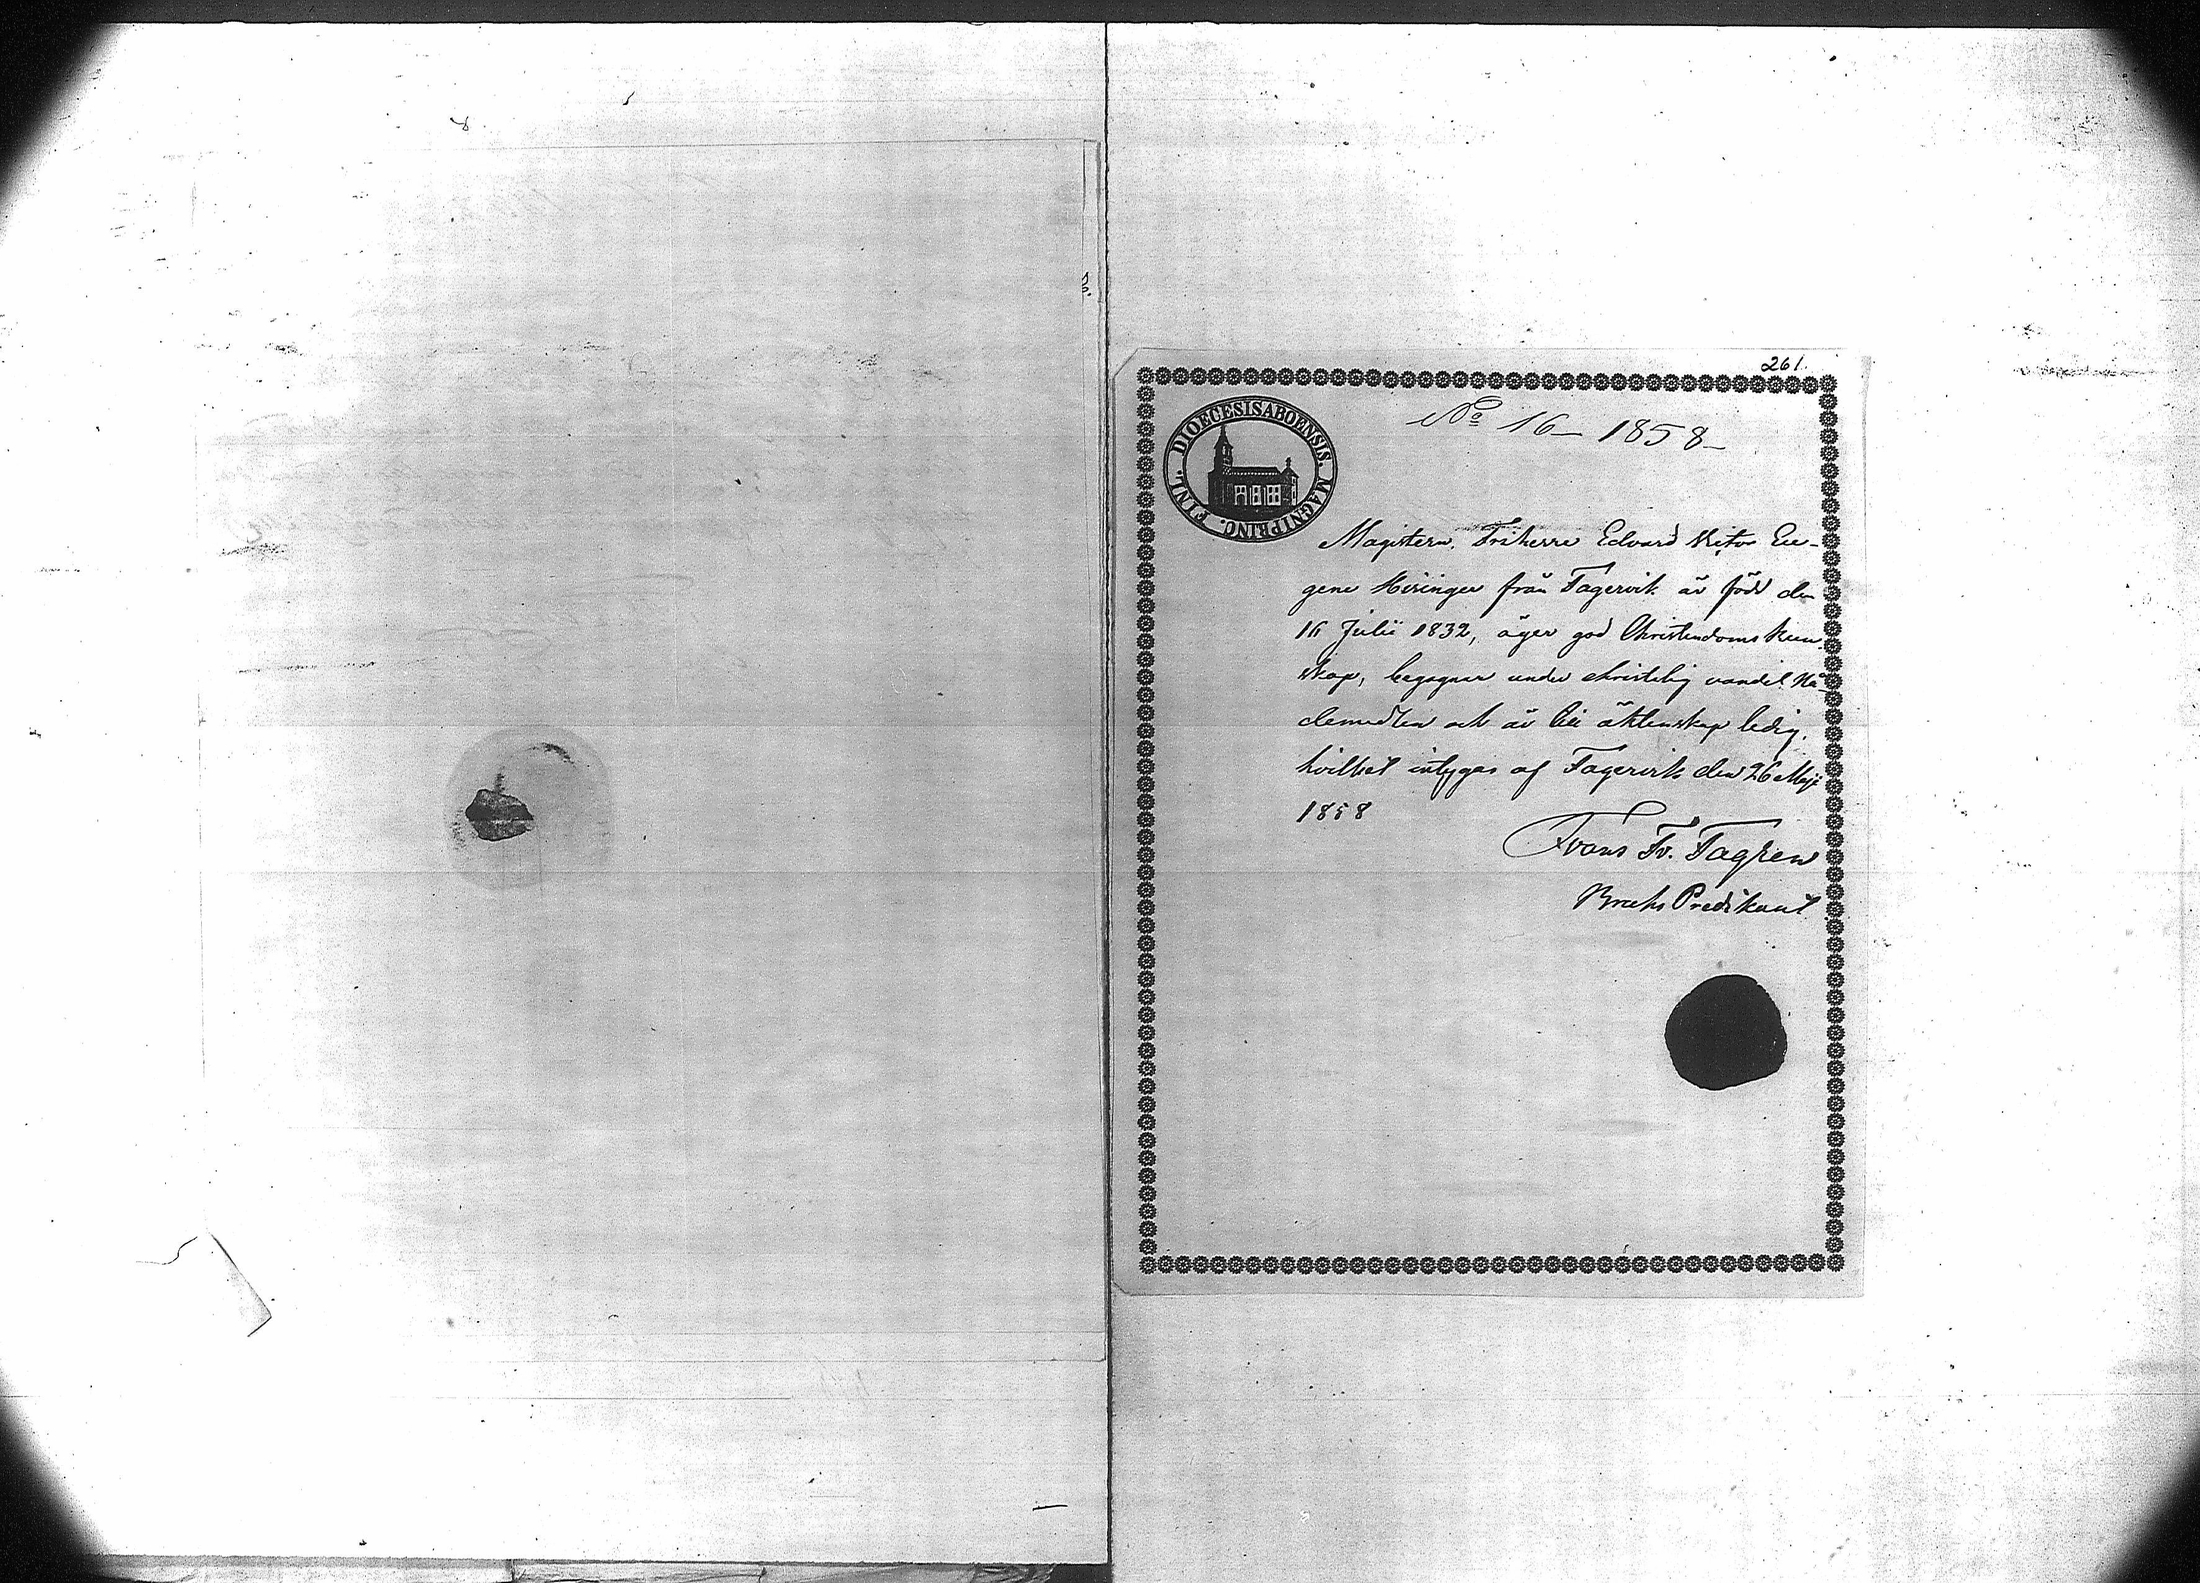 261.
No 16 – 1858 –
DIOECESIS ABOENSIS. MAGNI PRINC. FINL.
Magistern, Friherre Edvard Victor Eu-
gene Hisinger från Fagervik är född den
16 Julii 1832, äger god Christendoms kun-
skap, begagnar under christelig vandel Nå-
demedlen och är till äktenskap ledig,
hvilket intygas af Fagervik den 26 Maji
1858
Frans Fr. Fagren
Bruks Predikant